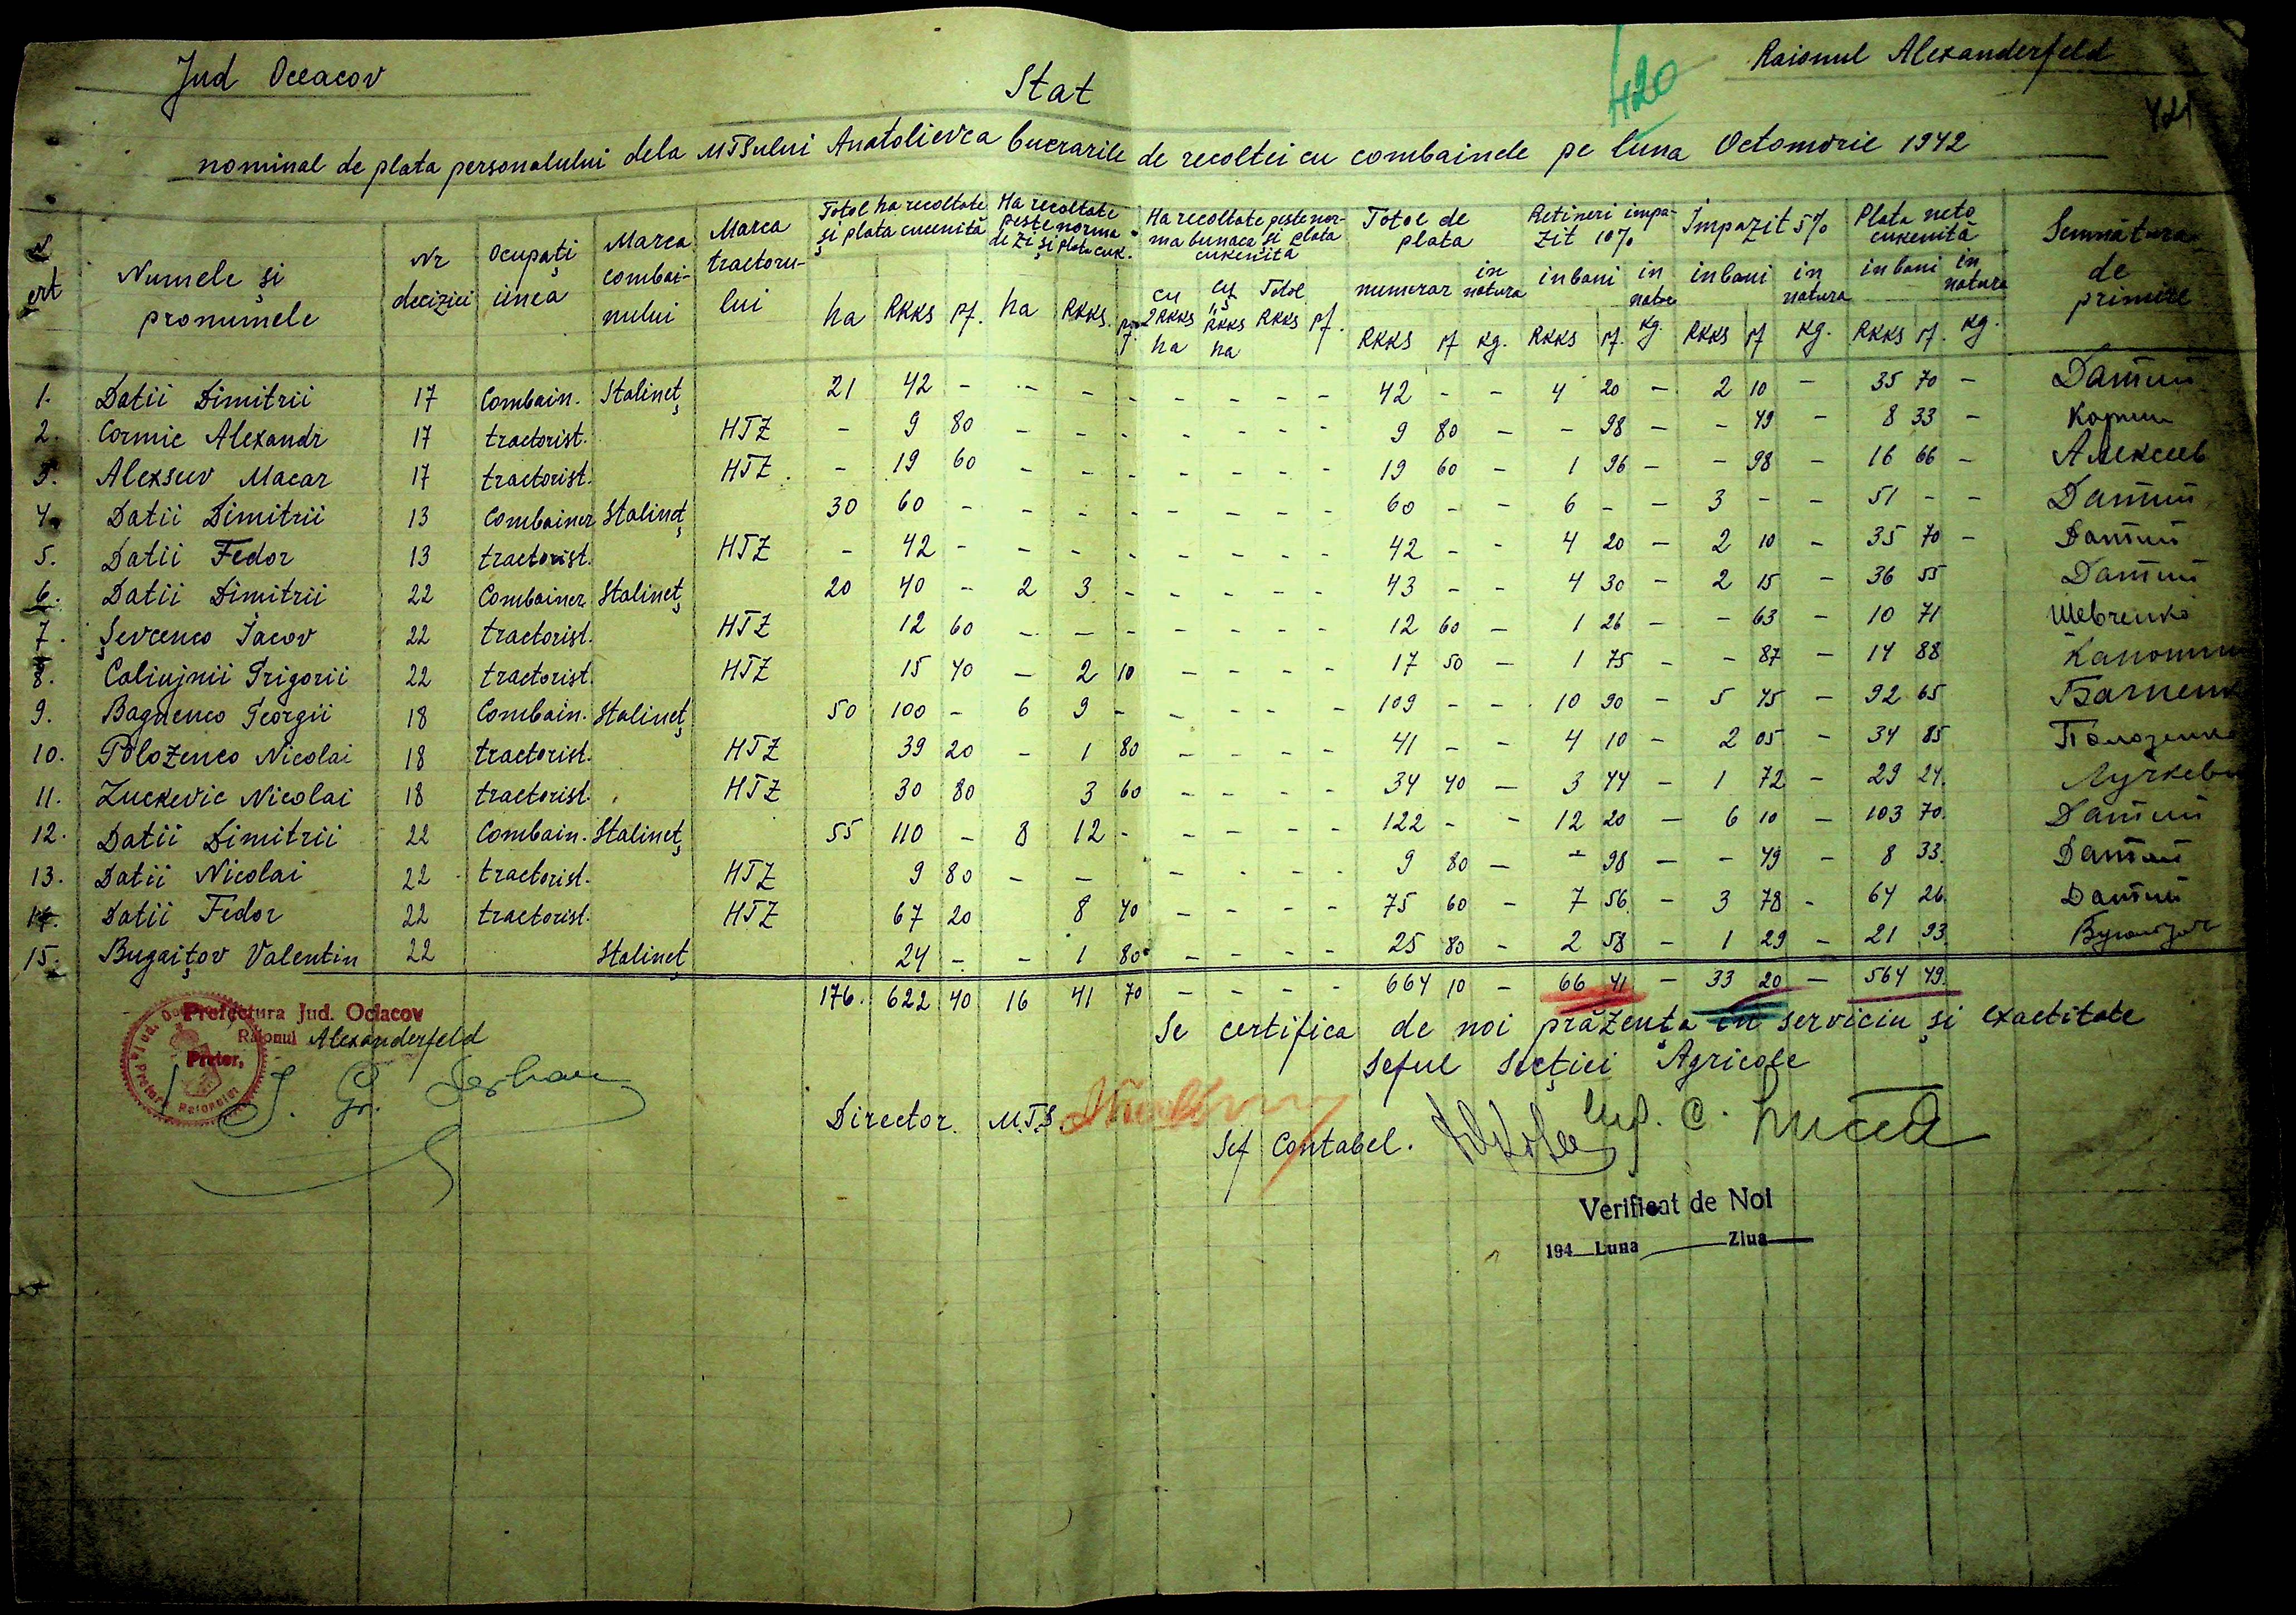 Jud Oceacov
Raionul Alexanderfeld
420
421
Stat
nominal de plata personalului dela MTSului Anatolievca lucrarile de recoltei cu combainele pe luna Octomvrie 1942
N crt | Numele și pronumele | Nr deciziei | Ocupați unea | Marca combai- nului | Marca tractoru- lui | Total ha recoltate și plata cuvenită | Ha recoltate peste norma de zi și plata cuv. | Ha recoltate peste nor- ma bunaca și plata cuvenita | Total de plata | Retineri impa- zit 10% | Impazit 5% | Plata neto cuvenita | Semnătura de primire
ha RKKS pf. | ha RKKS. pf. | cu 2 RKKS ha | cu „ RKKS ha | Total RKKS pf. | numerar RKKS pf | in natura kg. | in bani RKKS pf. | in natura kg. | in bani RKKS pf | in natura kg. | in bani RKKS pf. | in natura kg.
1. Datii Dimitrii 17 Combain. Stalineț 21 42 - - - - - - - - 42 - - 4 20 - 2 10 - 35 70 - Датии
2. Cormic Alexandr 17 tractorist. HTZ - 9 80 - - - - - - - 9 80 - - 98 - - 49 - 8 33 -
3. Alexseev Macar 17 tractorist. HTZ - 19 60 - - - - - - - 19 60 - 1 96 - - 98 - 16 66 - Алексеев
4. Datii Dimitrii 13 Combainer Stalineț 30 60 - - - - - - - - 60 - - 6 - - 3 - - 51 - - Датии
5. Datii Fedor 13 tractorist. HTZ - 42 - - - - - - - - 42 - - 4 20 - 2 10 - 35 70 - Датии
6. Datii Dimitrii 22 Combainer Stalineț 20 40 - 2 3 - - - - - 43 - - 4 30 - 2 15 - 36 55 Датии
7. Șevcenco Iacov 22 tractorist. HTZ 12 60 - - - - - - - 12 60 - 1 26 - - 63 - 10 71 Шевченко
8. Caliujnii Grigorii 22 tractorist. HTZ 15 40 - 2 10 - - - - 17 50 - 1 75 - - 87 - 14 88
9. Bagnenco Georgii 18 Combain. Stalineț 50 100 - 6 9 - - - - - 109 - - 10 90 - 5 45 - 92 65 Багненк
10. Polozenco Nicolai 18 tractorist. HTZ 39 20 - 1 80 - - - - 41 - - 4 10 - 2 05 - 34 85 Полозенко
11. Zuckevic Nicolai 18 tractorist. HTZ 30 80 3 60 - - - - 34 40 - 3 44 - 1 72 - 29 24.
12. Datii Dimitrii 22 Combain. Stalineț 55 110 - 8 12 - - - - - 122 - - 12 20 - 6 10 - 103 70. Датии
13. Datii Nicolai 22 tractorist. HTZ 9 80 - - - - - - 9 80 - - 98 - - 49 - 8 33. Датии
14. Datii Fedor 22 tractorist. HTZ 67 20 8 40 - - - - 75 60 - 7 56 - 3 78 - 64 26. Датии
15. Bugaițov Valentin 22 Stalineț 24 - - 1 80 - - - - 25 80 - 2 58 - 1 29 - 21 93
176. 622 40 16 41 70 - - - - 664 10 - 66 41 - 33 20 - 564 49.
Prefectura Jud. Ociacov
Raionul Alexanderfeld
Pretor,
Se certifica de noi prăzența in serviciu și exactitate
Seful Secției Agricole
Director. M.T.S
Sef Contabel.
Verificat de Noi
194 Luna Ziua